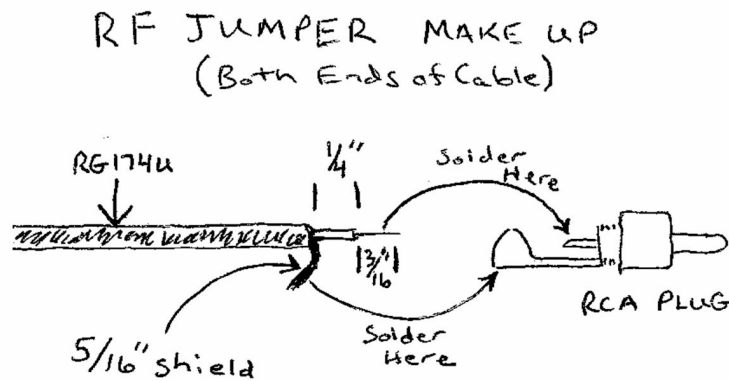 RF JUMPER MAKE UP
(Both Ends of Cable)
RG174U
1/4"
Solder
Here
3/16"
5/16" shield
Solder
Here
RCA PLUG